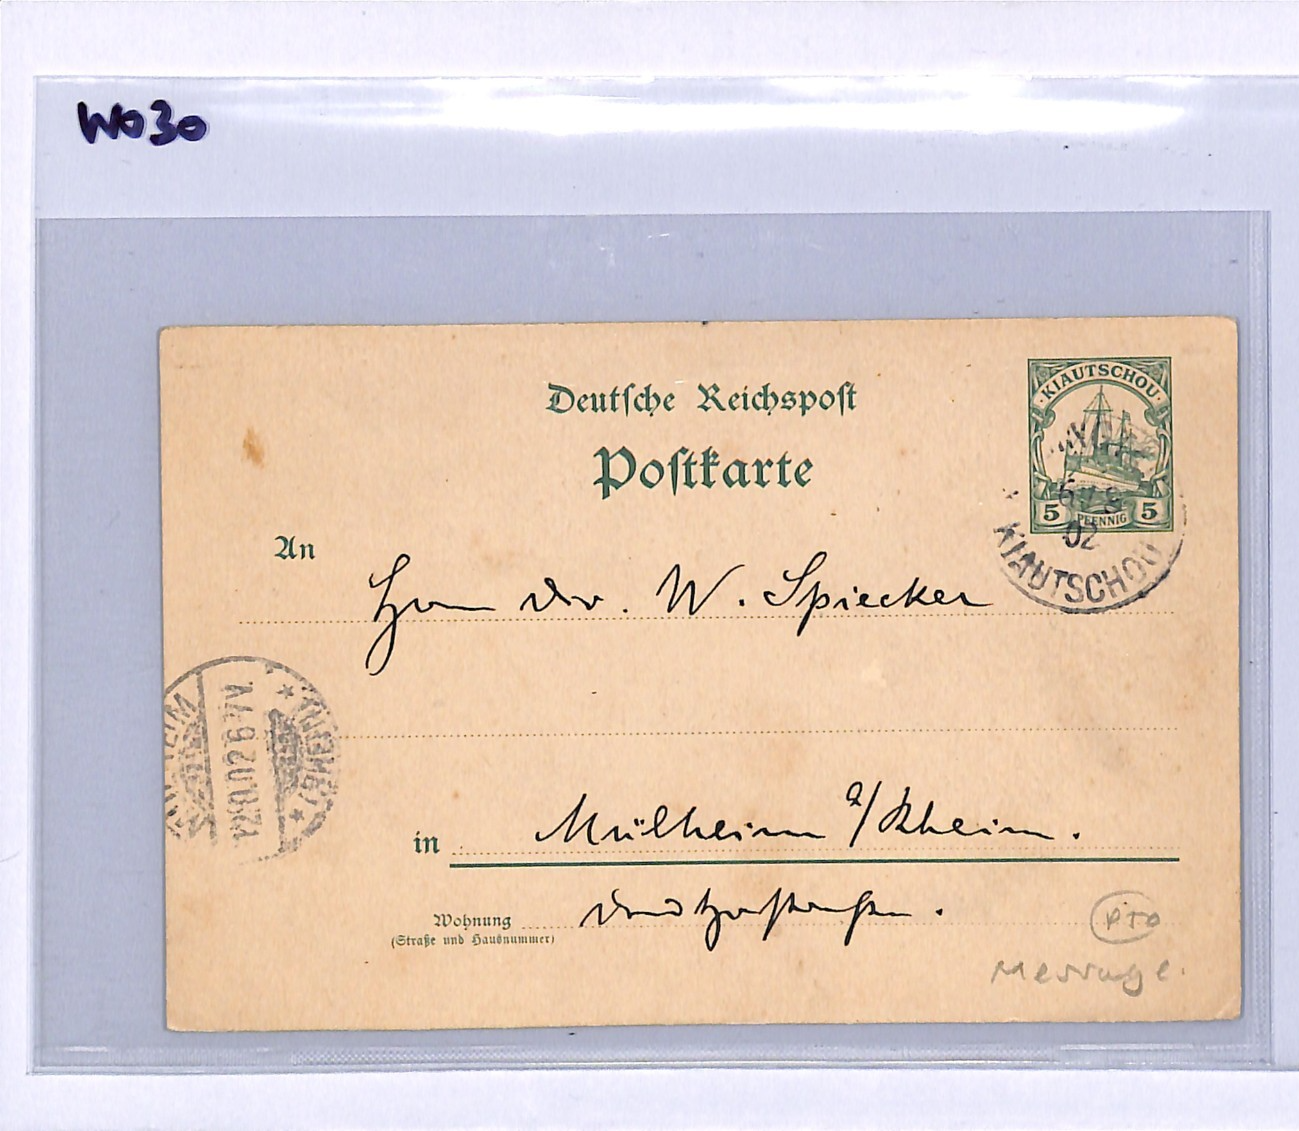 W030
Deutsche Reichspost
Postkarte
KIAUTSCHOU
5 PFENNIG 5
6/9
02
KIAUTSCHOU
An
Herrn Dr. W. Spiecker
12.10.02.6-7V.
in Mülheim a/Rhein.
Wohnung
(Straße und Hausnummer)
PTO
Message.